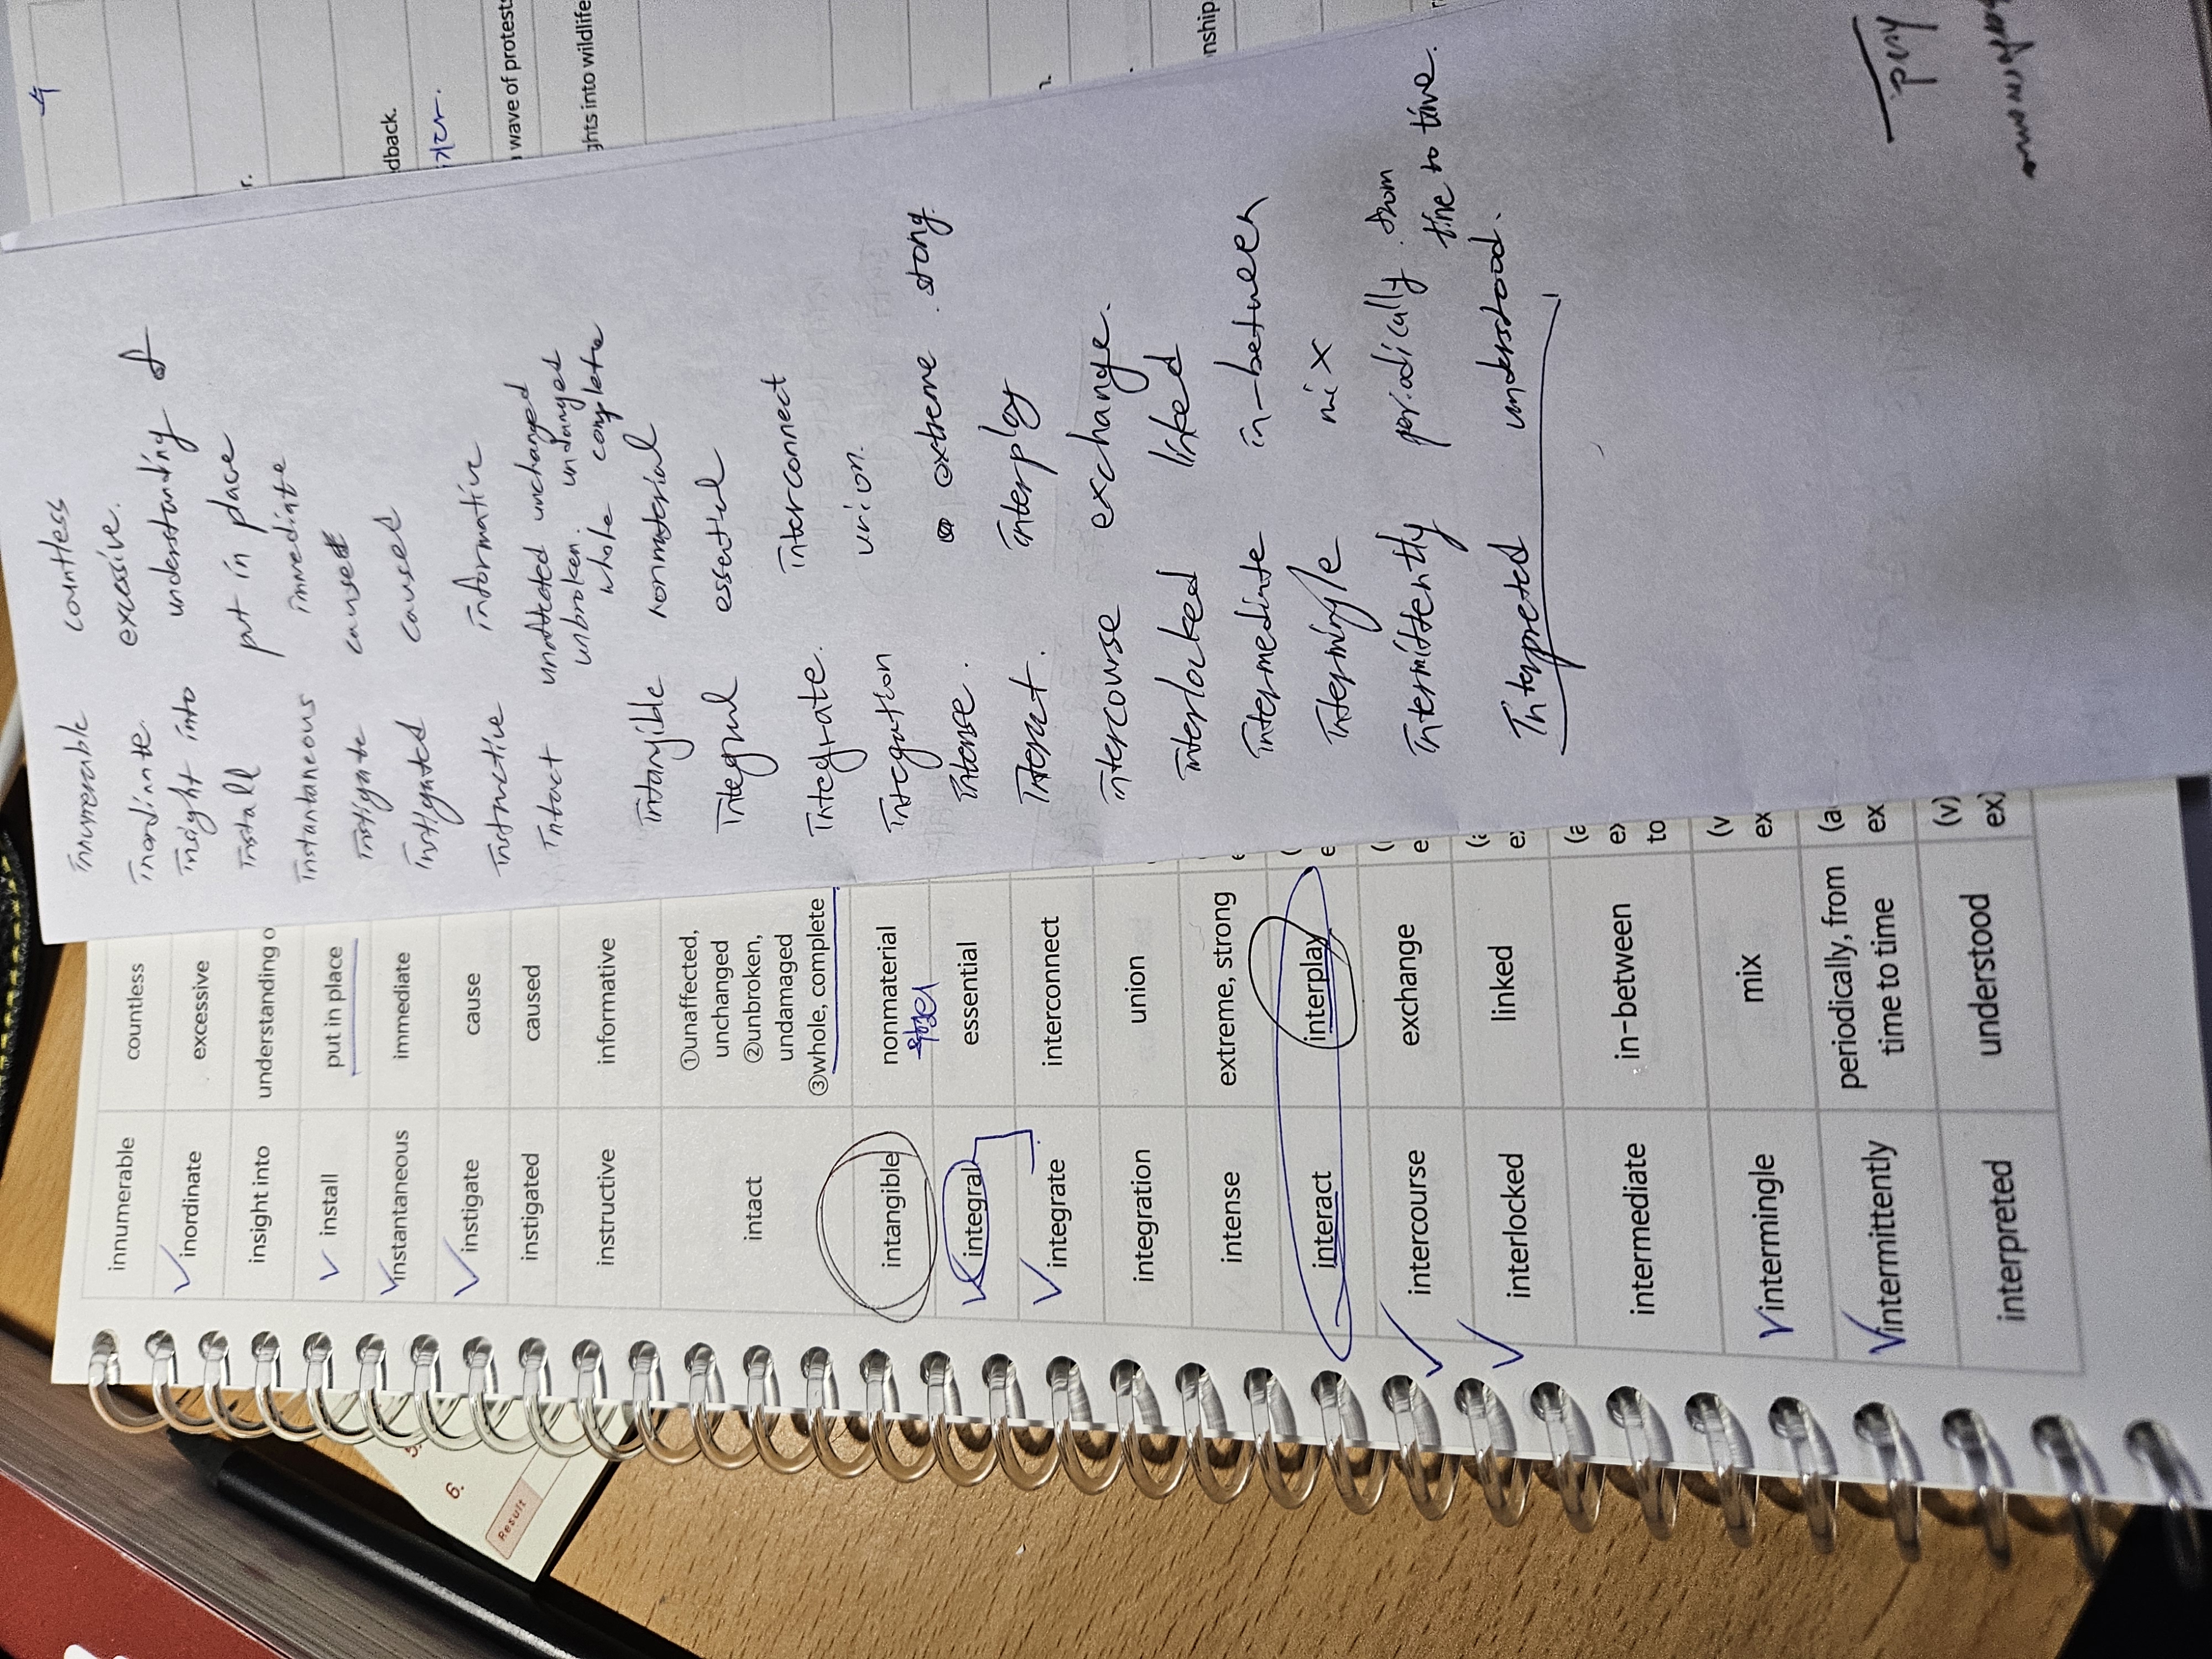 innumerable countless
inordinate. excessive.
insight into understanding of
install put in place
instantaneous immediate
instigate cause
instigated caused
instructive informative
intact unaffected unchanged
unbroken. undamaged
whole complete
intangible nonmaterial
integral essential
integrate. interconnect
integration union.
intense. extreme. strong.
interact. interplay
intercourse exchange.
interlocked linked
intermediate in-between
intermingle mix
intermittently periodically. from
time to time.
interpreted understood.
innumerable countless
inordinate excessive
insight into understanding o
install put in place
instantaneous immediate
instigate cause
instigated caused
instructive informative
intact ①unaffected,
unchanged
②unbroken,
undamaged
③whole, complete
intangible nonmaterial
integral essential
integrate interconnect
integration union
intense extreme, strong
interact interplay
intercourse exchange
interlocked linked
intermediate in-between
to
intermingle mix
intermittently periodically, from
time to time
interpreted understood
(v)
ex)
dback.
wave of protest
ghts into wildlife
nship
6.
Result